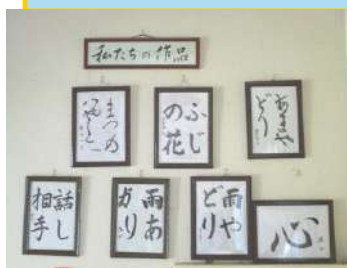 私たちの作品
まつの
ふじ
の花
あまや
どり
話し
相手
雨あ
がり
雨や
どり
心